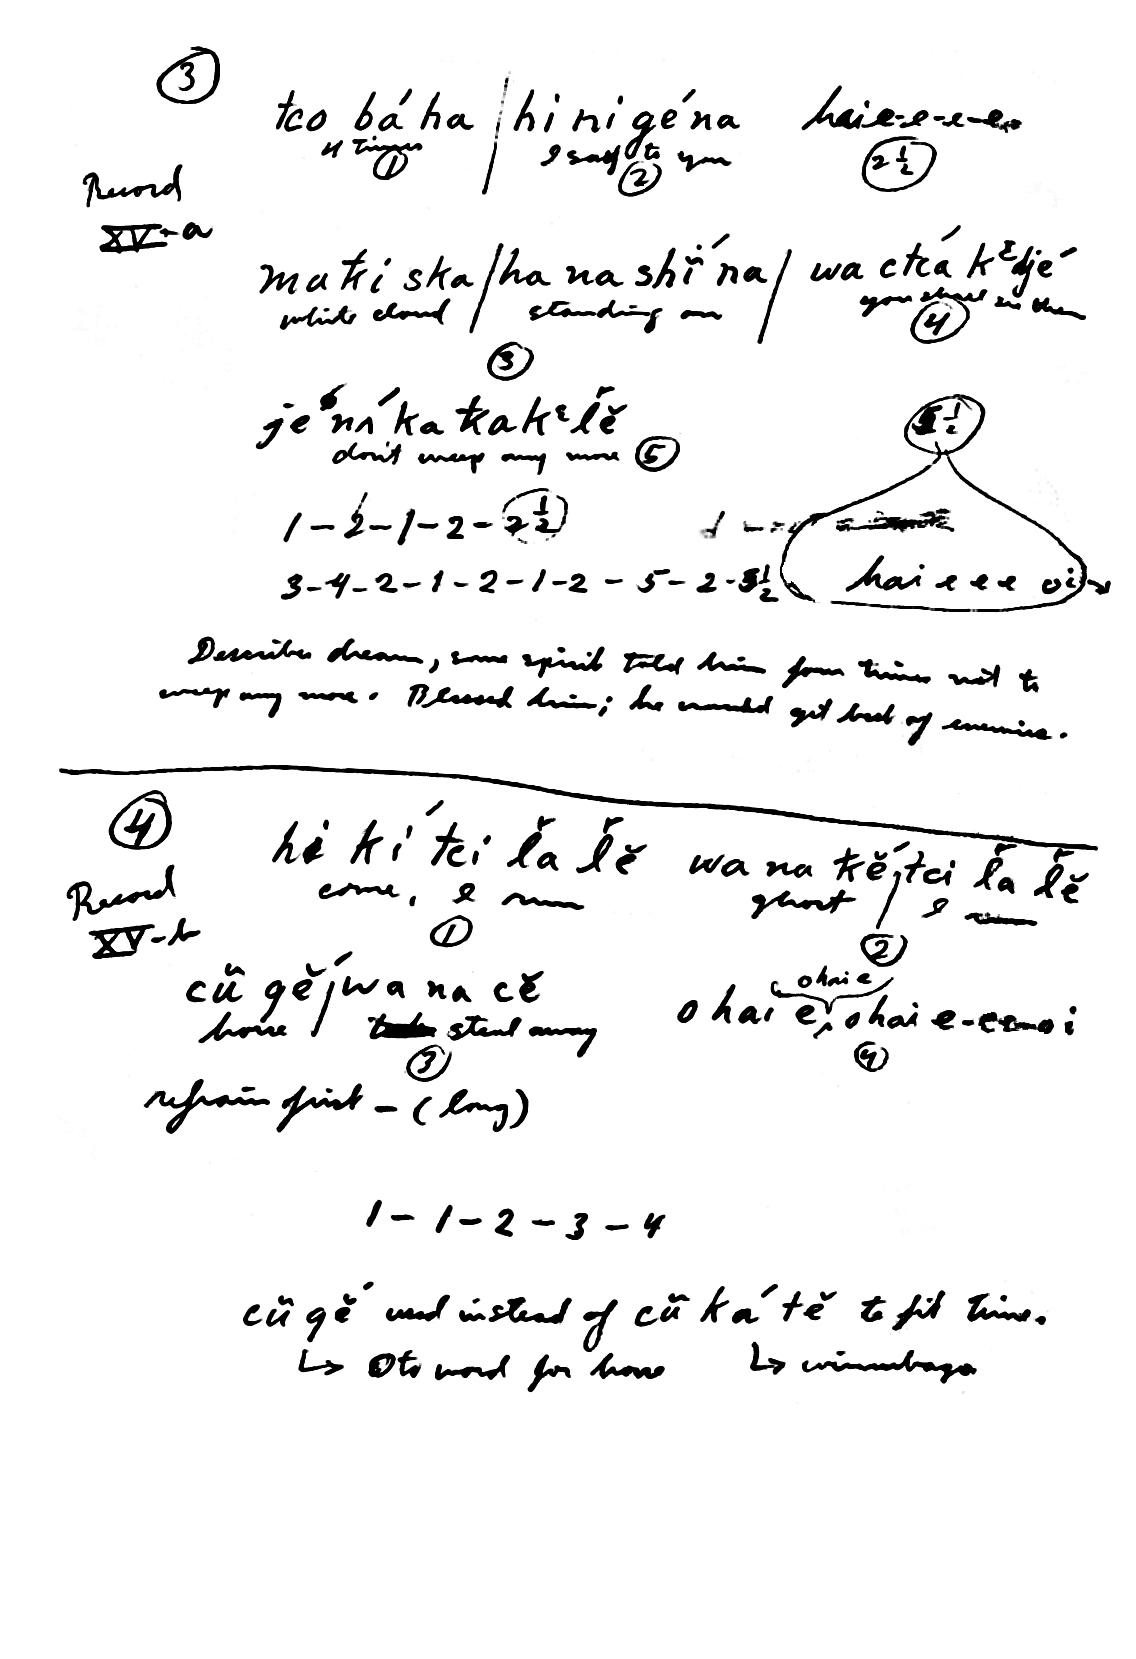 3
tco bá ha / hi ni géna haie-e-e-e
4 times I say to you
1 2 2½
Record
XV-a
ma ki ska / ha na shí na / wa ctcá kᵋdjé
white cloud standing on you shall see them
3 4
je ní ka ka kᵋ ľĕ
don't weep any more 5
1-2-1-2-2½
3-4-2-1-2-1-2-5-2-5½
5½
hai e e e oi
Describes dream, some spirit told him four times not to
weep any more. Blessed him; he would get best of enemies.
4
hi kí tci ľa ľĕ wa na kĕ́ / tci ľa ľĕ
come, I ghost / I
Record
XV-b
1 2
cŭ gĕ́ / wa na cĕ o hai e, ohai e ohai e-e-e-oi
horse / steal away
3 4
refrain first - (long)
1-1-2-3-4
cŭ gĕ́ used instead of cŭ ká tĕ to fit time.
↳ Oto word for horse ↳ winnebago